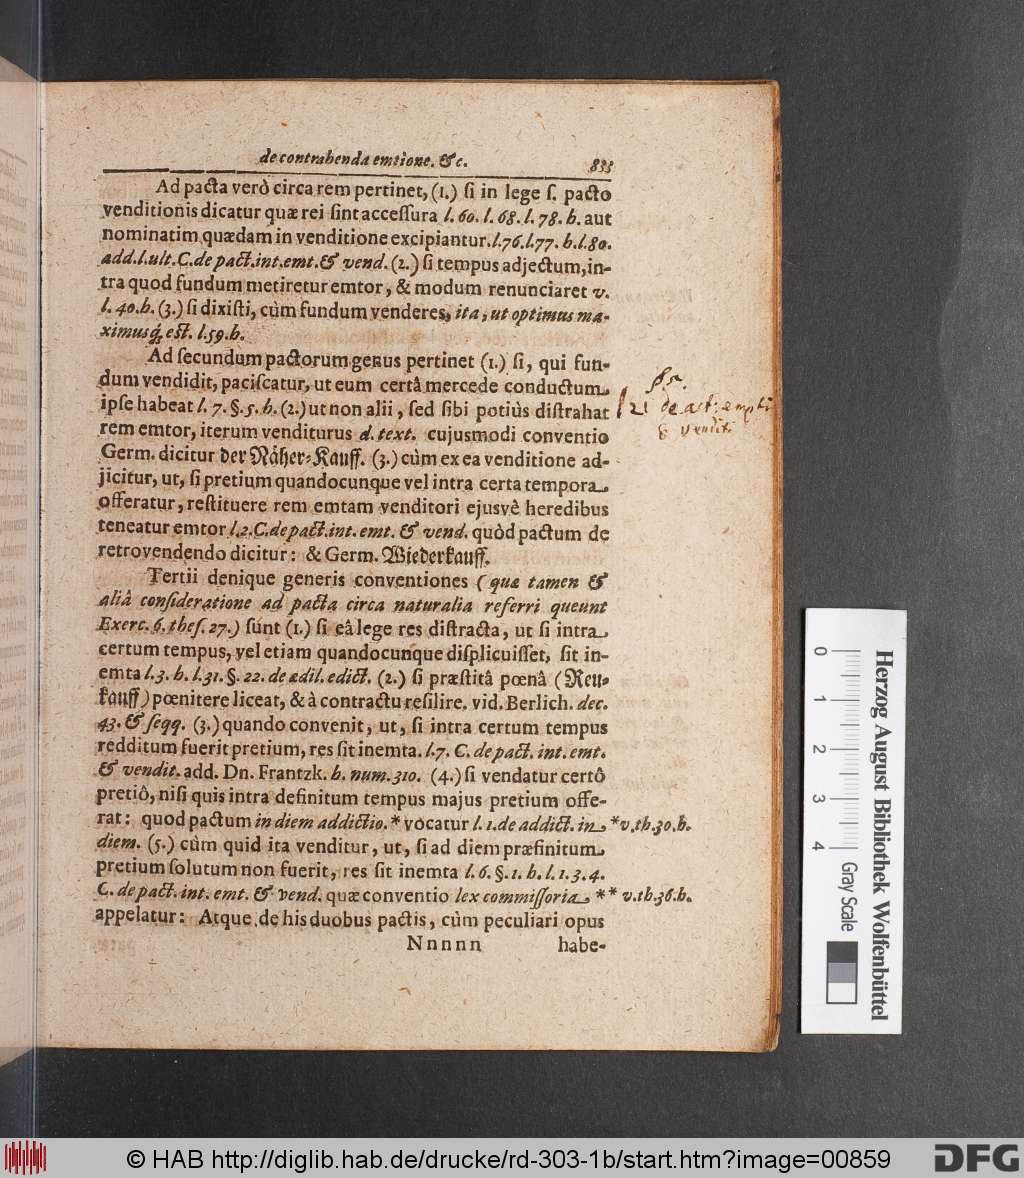 de contrahenda emtione. &c. 833
Ad pacta verò circa rem pertinet, (1.) ſi in lege ſ. pacto
venditionis dicatur quæ rei ſint acceſſura l. 60. l. 68. l. 78. h. aut
nominatim quædam in venditione excipiantur. l. 76. l. 77. h. l. 80.
add. l. ult. C. de pact. int. emt. & vend. (2.) ſi tempus adjectum, in-
tra quod fundum metiretur emtor, & modum renunciaret v.
l. 40. h. (3.) ſi dixiſti, cùm fundum venderes, ita, ut optimus ma-
ximusq́; eſt. l. 59. h.
Ad ſecundum pactorum genus pertinet (1.) ſi, qui fun-
dum vendidit, paciſcatur, ut eum certâ mercede conductum
ipſe habeat l. 7. §. 5. h. (2.) ut non alii, ſed ſibi potiùs diſtrahat
rem emtor, iterum venditurus d. text. cujusmodi conventio
Germ. dicitur der Näher-Kauff. (3.) cùm ex ea venditione ad-
jicitur, ut, ſi pretium quandocunque vel intra certa tempora
offeratur, reſtituere rem emtam venditori ejusvè heredibus
teneatur emtor l. 2. C. de pact. int. emt. & vend. quòd pactum de
retrovendendo dicitur: & Germ. Wiederkauff.
Tertii denique generis conventiones (quæ tamen &
aliâ conſideratione ad pacta circa naturalia referri queunt
Exerc. 6. theſ. 27.) ſunt (1.) ſi eâ lege res diſtracta, ut ſi intra
certum tempus, vel etiam quandocunque diſplicuiſſet, ſit in-
emta l. 3. h. l. 31. §. 22. de ædil. edict. (2.) ſi præſtitâ pœnâ (Reu-
kauff) pœnitere liceat, & à contractu reſilire. vid. Berlich. dec.
43. & ſeqq. (3.) quando convenit, ut, ſi intra certum tempus
redditum fuerit pretium, res ſit inemta. l. 7. C. de pact. int. emt.
& vendit. add. Dn. Frantzk. h. num. 310. (4.) ſi vendatur certô
pretiô, niſi quis intra definitum tempus majus pretium offe-
rat: quod pactum in diem addictio.* vocatur l. 1. de addict. in *v. th. 30. h.
diem. (5.) cùm quid ita venditur, ut, ſi ad diem præfinitum
pretium ſolutum non fuerit, res ſit inemta l. 6. §. 1. h. l. 1. 3. 4.
C. de pact. int. emt. & vend. quæ conventio lex commiſſoria ** v. th. 36. h.
appelatur: Atque de his duobus pactis, cùm peculiari opus
Nnnnn habe-
l 21 de act. empti
& venditi
0 1 2 3 4
Gray Scale
Herzog August Bibliothek Wolfenbüttel
© HAB http://diglib.hab.de/drucke/rd-303-1b/start.htm?image=00859
DFG